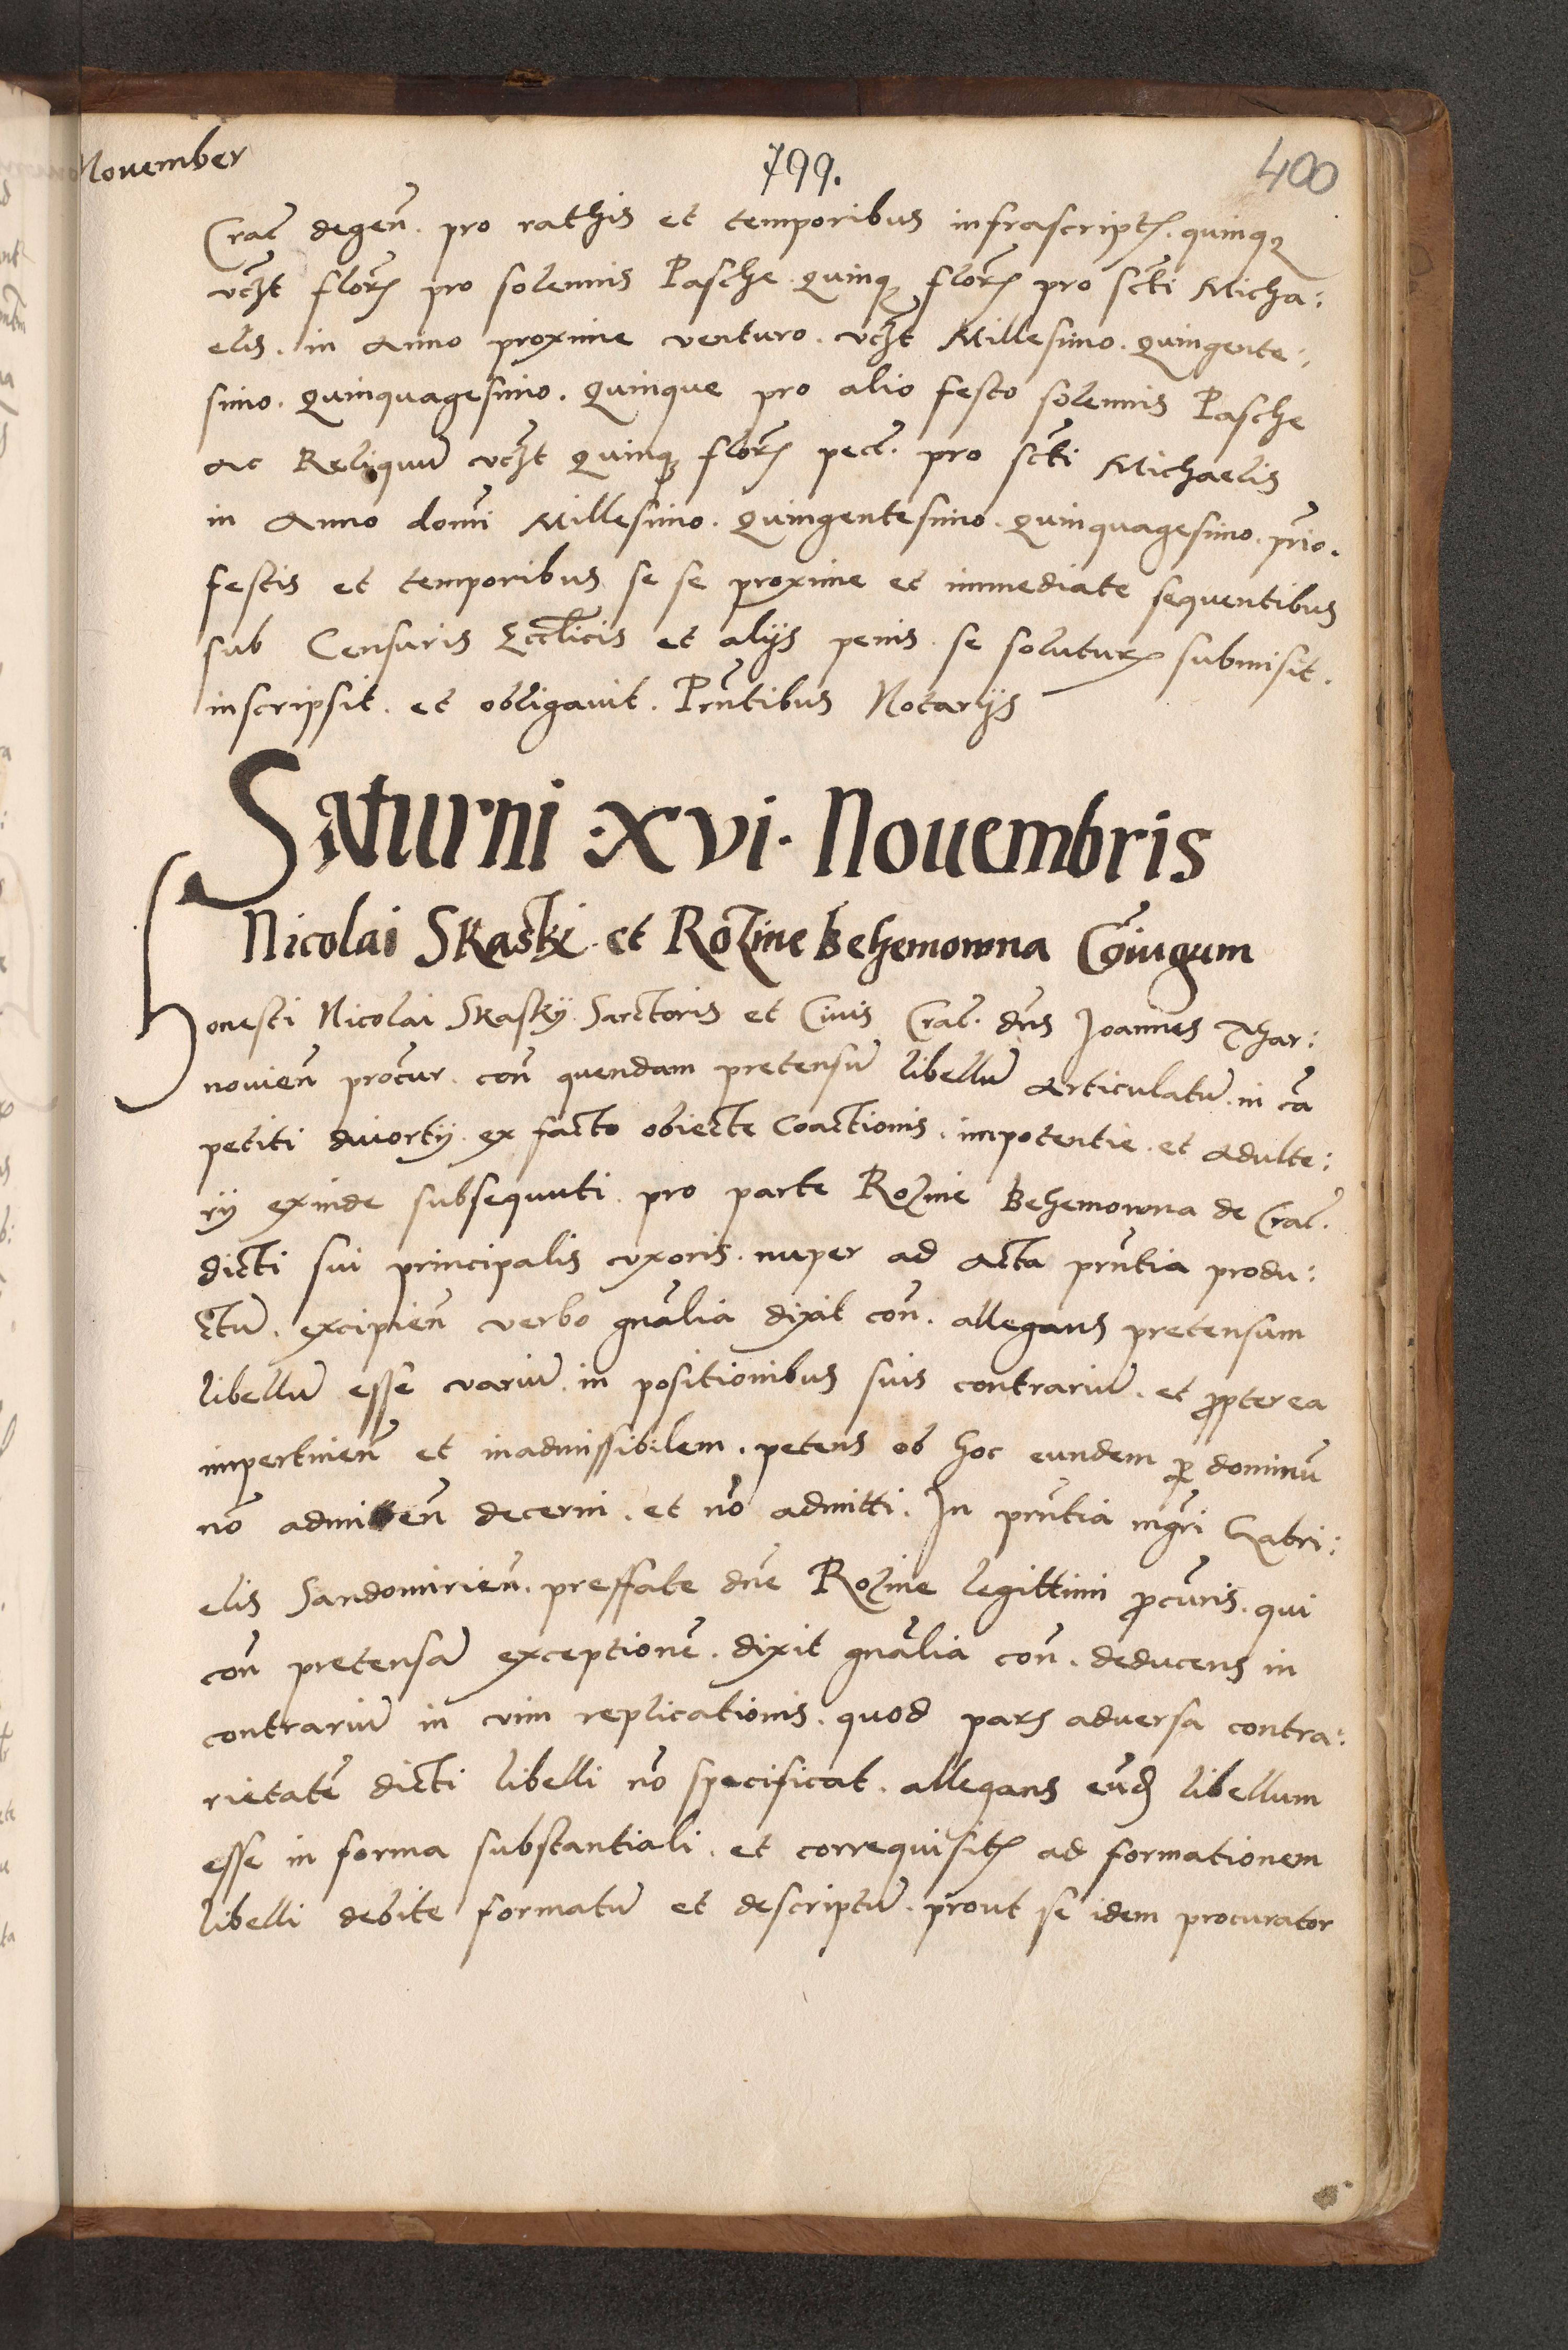 November
799.
400
Crac̃ degeñ. pro rathis et temporibus infrascriptꝭ. quinqꝫ
vcz̃t florꝭ pro solennis Pasche quinqꝫ florꝭ pro scti Micha:
elis. in Anno proxime venturo. vcz̃t Millesimo. quingente:
simo. quinquagesimo. quinque pro alio festo solennis Pasche
Ac Reliquũ vcz̃t quinqꝫ florꝭ pecc̃. pro scti Michaelis
in Anno domi Millesimo. quingentesimo. quinquagesimo. prĩo.
festis et temporibus se se proxime et immediate sequentibus
sub Censuris Eccĺicis et alijs penis. se soluturꝝ submisit.
inscripsit. et obligauit. Prñtibus Notarijs
Saturni .xvi. Nouembris
Nicolai Skaski et Rozine Behemowna Cõiugum
Honesti Nicolai Skasky Sarctoris et Ciuis Crac̃. dñs Joannes Thar:
nouieñ procur. con̄ quendam pretensũ libellũ Articulatũ. in cã
petiti diuortij. ex facto obiecte Coactionis. impotentie. et Adulte:
rij exinde subsequuti. pro parte Rozine Behemowna de Crac̃.
dicti sui principalis vxoris. nuper ad Acta prñtia produ:
ctũ. excipieñ verbo gñalia dixit con̄. allegans pretensum
libellũ esse variũ. in positionibus suis contrariũ. et ꝓpterea
impertineñ et inadmissibilem. petens ob hoc eundem ꝑ dominũ
nõ admitteñ decerni. et nõ admitti. In prñtia mgr̃i Gabri:
elis Sandomirieñ. preffate dñe Rozine legittimi ꝓcuris. qui
con̄ pretensã exceptionẽ. dixit gñalia con̄. deducens in
contrariũ in vim replicationis. quod pars aduersa contra:
rietatẽ dicti libelli nõ specificat. allegans eũd libellum
esse in forma substantiali. et correquisitꝭ ad formationem
libelli debite formatũ et descriptũ. prout se idem procurator